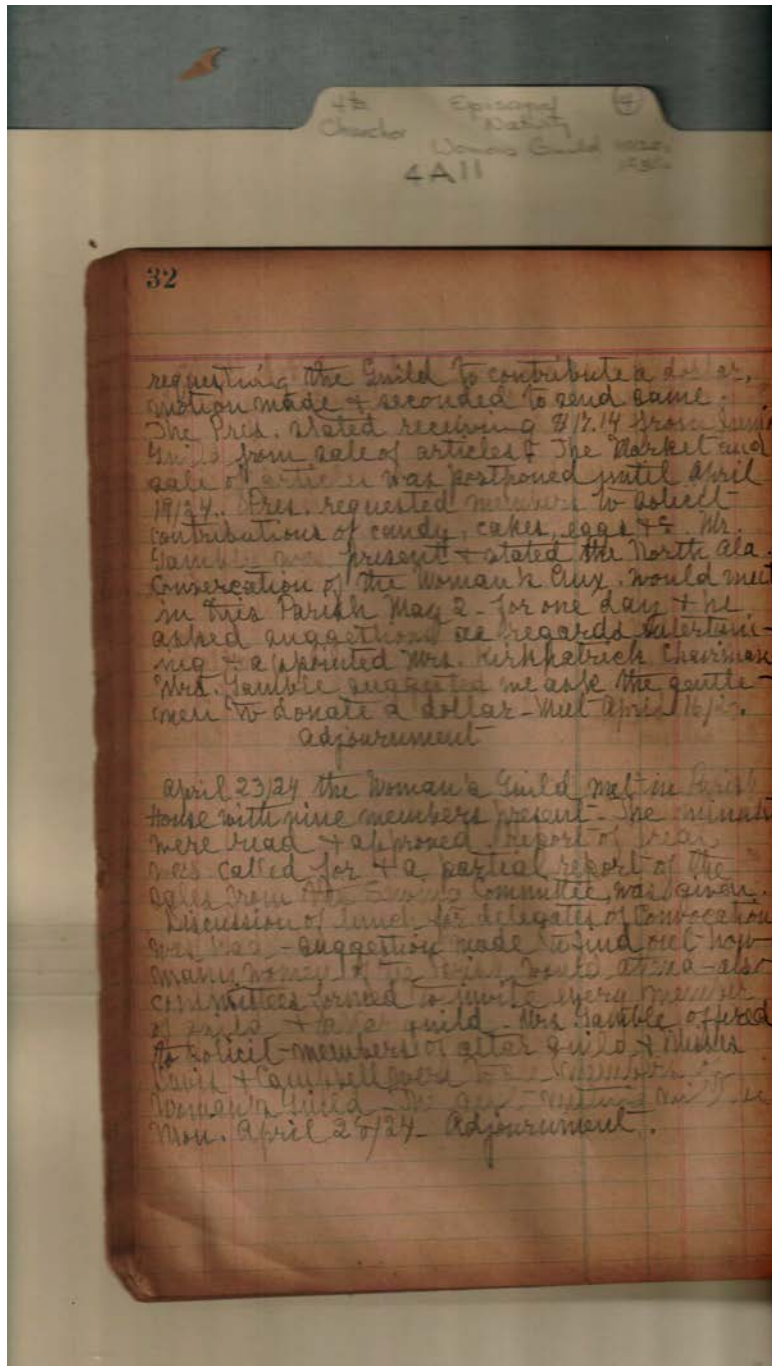 4th Episcopal 4
Churches Nativity
Womans Guild
4A11
32
requesting the Guild to contribute a dollar,
motion made & seconded to send same.
The Pres. stated receiving from
Guild from sale of articles & The Market and
sale of articles was postponed until April
19/24. Pres. requested members to solicit
contributions of candy, cakes, eggs &c. Mr.
Gamble was present & stated the North Ala.
Convocation of the Woman's Aux. would meet
in this Parish May 2 - for one day & he
asked suggestions as regards entertain-
ing & appointed Mrs. Kirkpatrick Chairman
Mrs. Gamble suggested we ask the gentle-
men to donate a dollar - Meet April
Adjournment
April 23/24 the Woman's Guild met in Parish
House with nine members present - The minutes
were read & approved. report of Treas.
was called for & a partial report of the
sales from the Committee, was given.
Discussion of lunch for delegates of Convocation
was had - suggestion made to find out how
many women of the Parish would attend - also
committees formed to invite every member
of guild & altar guild - Mrs Gamble offered
to solicit members of altar guild &
Davis & Campbell were to see members of
Woman's Guild - The next meeting will be
Mon. April 28/24 - Adjournment.